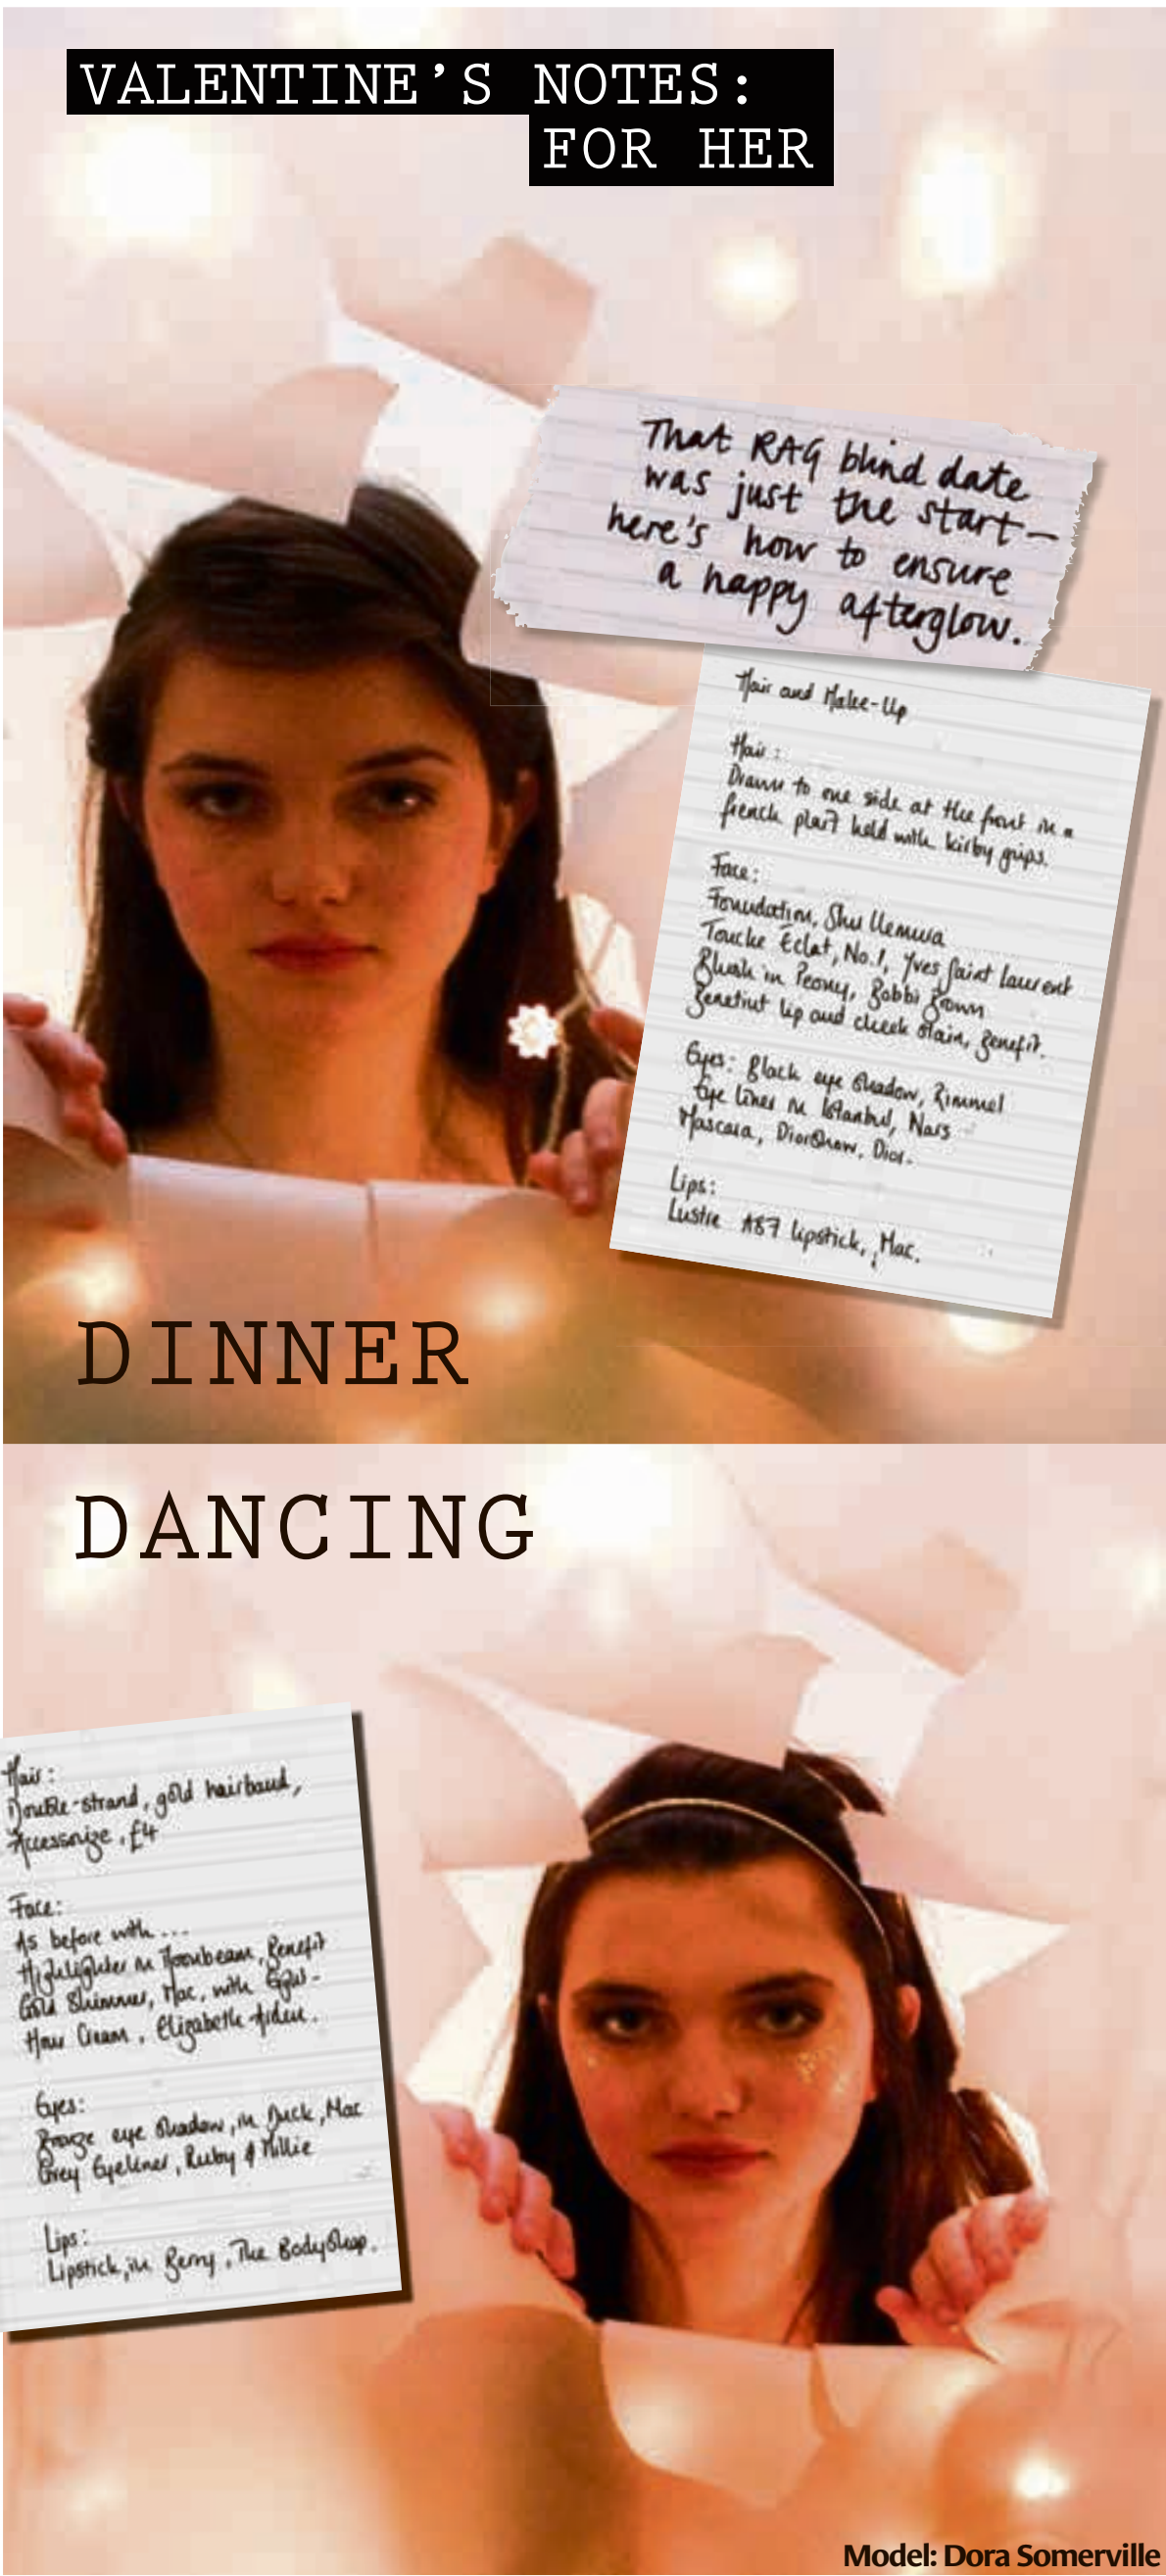 VALENTINE'S NOTES:
FOR HER
That RAG blind date
was just the start—
here's how to ensure
a happy afterglow.
Hair and Make-Up
Hair:
Drawn to one side at the front in a
french plait held with kirby grips.
Face:
Foundation, Shu Uemura
Touche Éclat, No.1, Yves Saint Laurent
Blush in Peony, Bobbi Brown
Benetint lip and cheek stain, Benefit.
Eyes: Black eye shadow, Rimmel
Eye liner in Istanbul, Nars
Mascara, DiorShow, Dior.
Lips:
Lustre A87 lipstick, Mac.
DINNER
DANCING
Hair:
Double-strand, gold hairband,
Accessorize, £4
Face:
As before with...
Highlighter in Moonbeam, Benefit
Gold Shimmer, Mac, with Eight-
Hour Cream, Elizabeth Arden.
Eyes:
Bronze eye shadow, in Duck, Mac
Grey Eyeliner, Ruby & Millie
Lips:
Lipstick, in Berry, The BodyShop.
Model: Dora Somerville